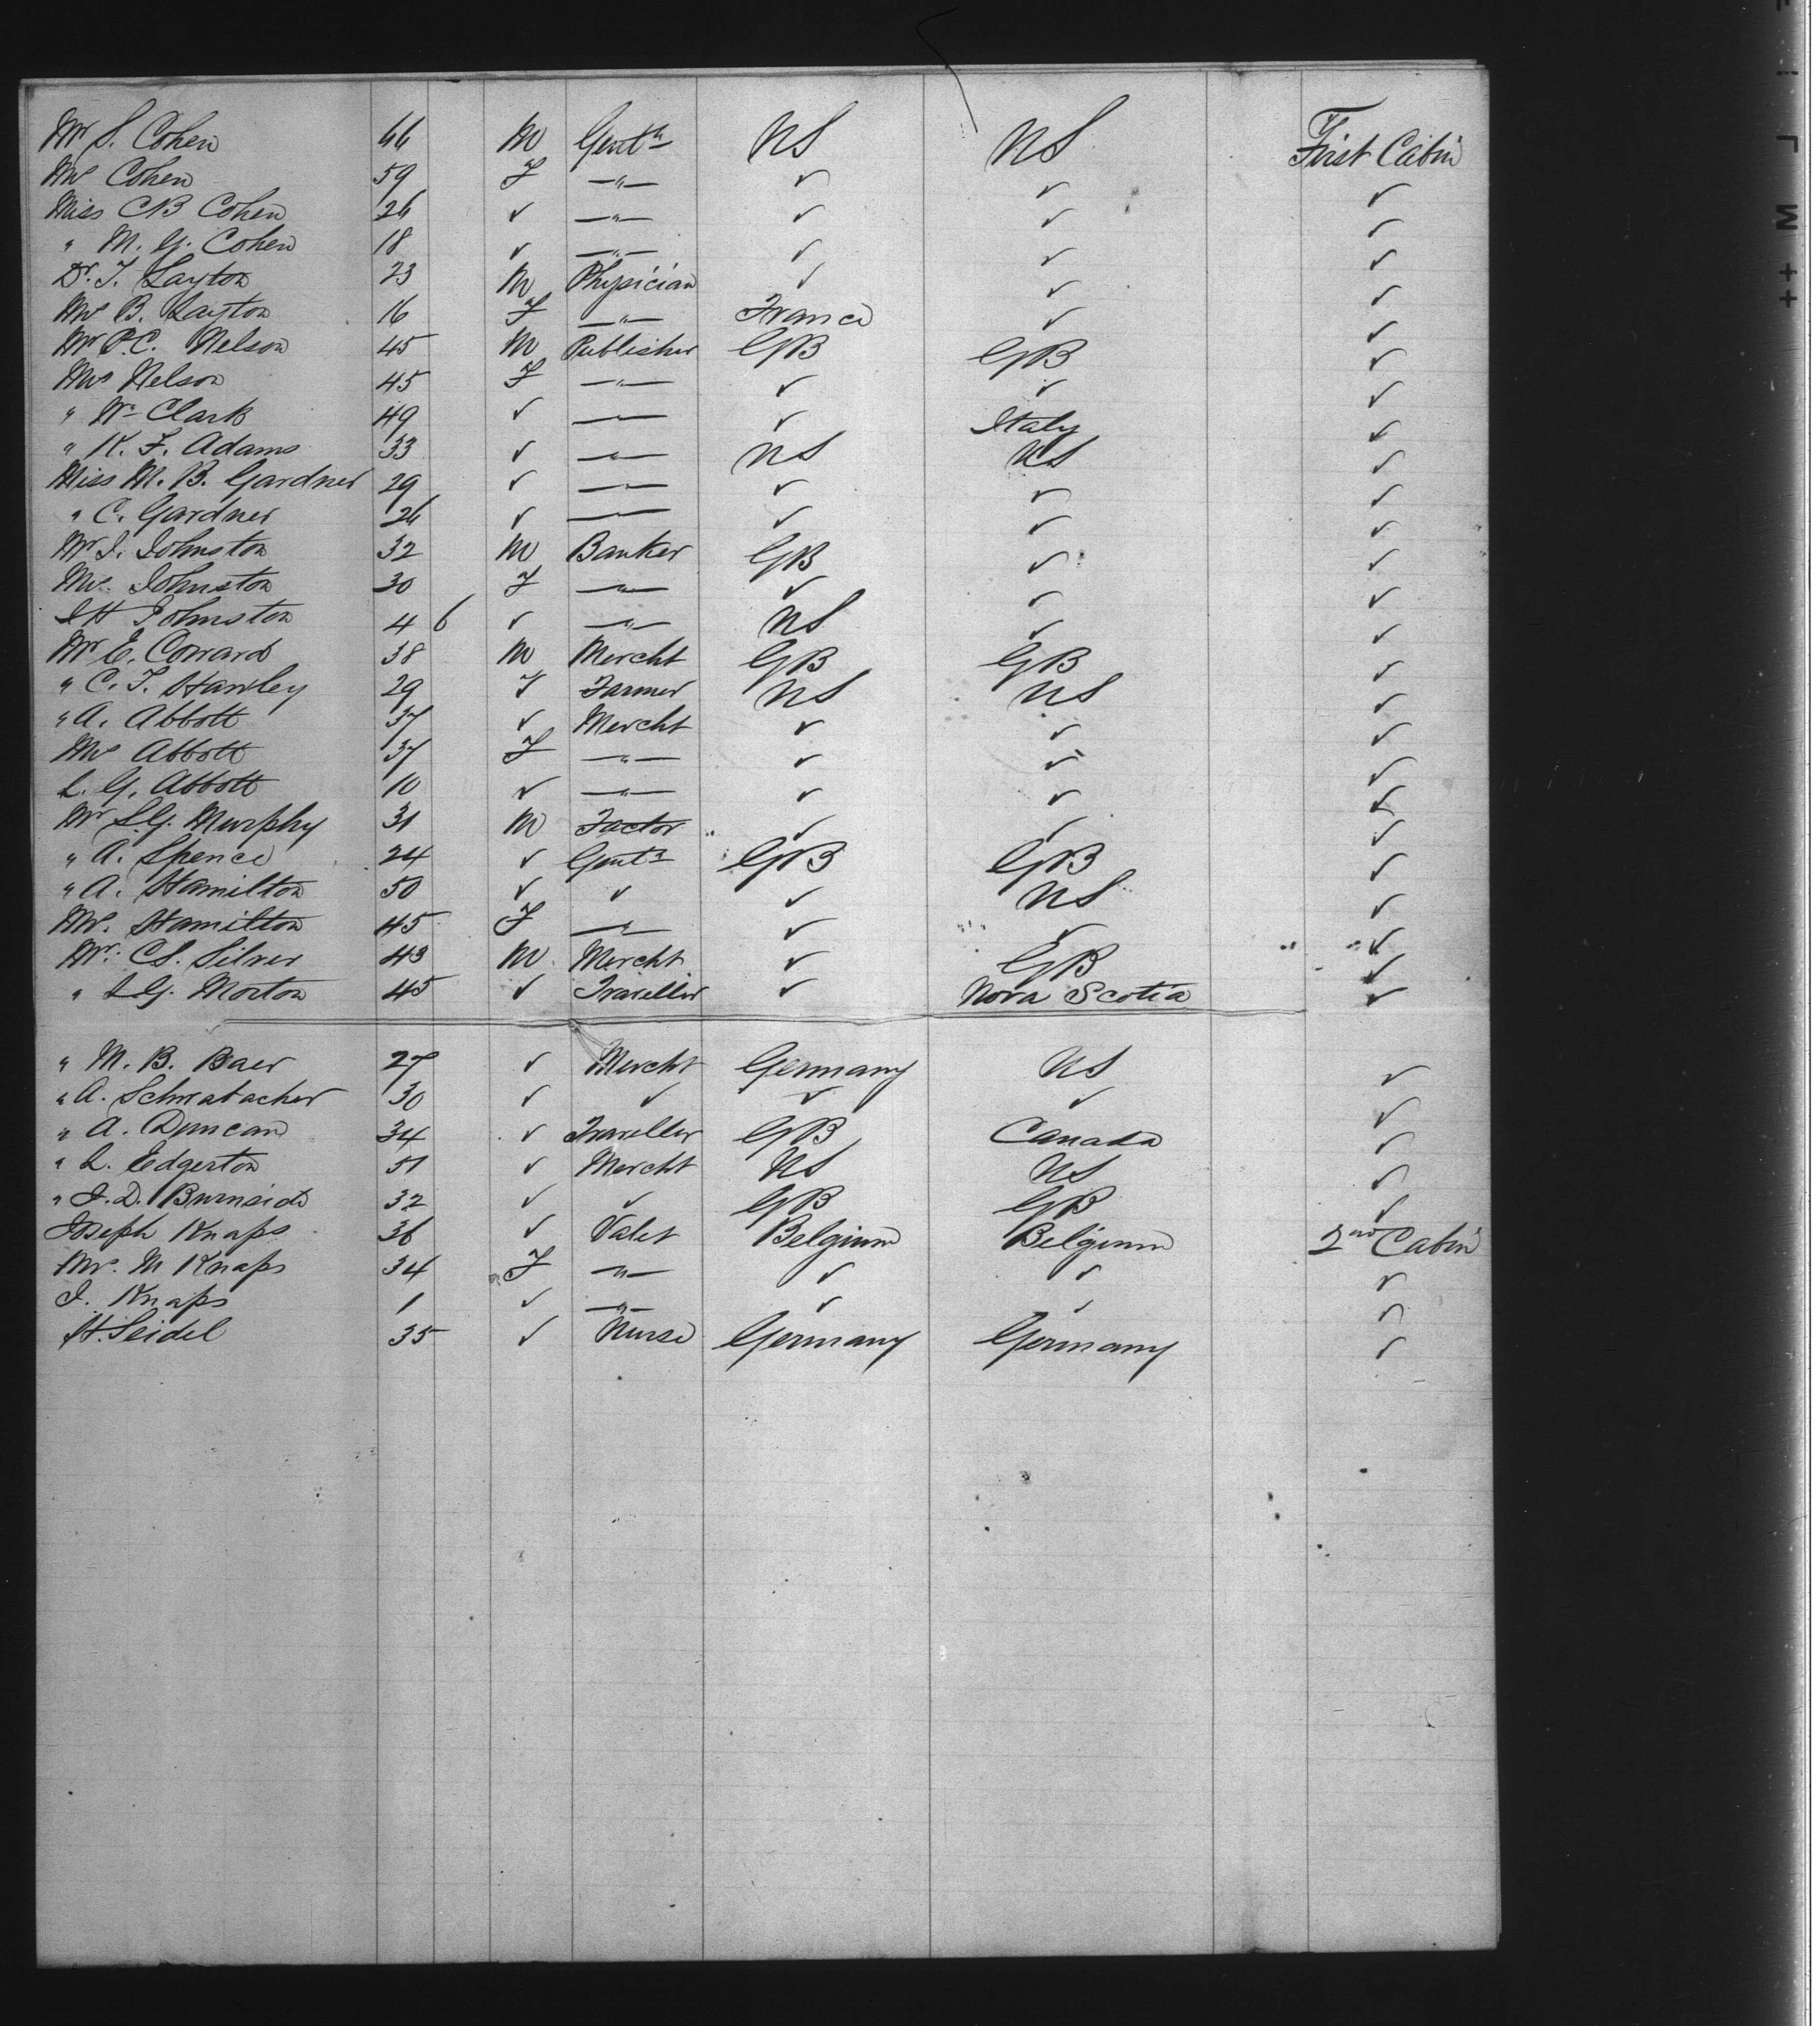 Mr S. Cohen 66 M Gent'n US US First Cabin
Mrs Cohen 59 F —"— ✓ ✓ ✓
Miss CB Cohen 26 ✓ —"— ✓ ✓ ✓
" M. G. Cohen 18 ✓ —"— ✓ ✓ ✓
Dr. T. Layton 23 M Physician ✓ ✓ ✓
Mrs B. Layton 16 F —"— France ✓ ✓
Mr P.C. Nelson 45 M Publisher GB GB ✓
Mrs Nelson 45 F —"— ✓ ✓ ✓
" Wm Clark 49 ✓ —"— ✓ Italy ✓
" K. F. Adams 33 ✓ —"— US US ✓
Miss M. B. Gardner 29 ✓ —"— ✓ ✓ ✓
" C. Gardner 26 ✓ —"— ✓ ✓ ✓
Mr J. Johnston 32 M Banker GB ✓ ✓
Mrs. Johnston 30 F —"— ✓ ✓ ✓
J H Johnston 4 6 ✓ —"— US ✓ ✓
Mr E. Coward 38 M Mercht GB GB ✓
" C. T. Hawley 29 ✓ Farmer US US ✓
" A. Abbott 37 ✓ Mercht ✓ ✓ ✓
Mrs Abbott 37 F —"— ✓ ✓ ✓
L. G. Abbott 10 ✓ —"— ✓ ✓ ✓
Mr L.G. Murphy 31 M Factor ✓ ✓ ✓
" A. Spence 24 ✓ Gent'n GB GB ✓
" A. Hamilton 50 ✓ ✓ ✓ US ✓
Mrs. Hamilton 45 F —"— ✓ ✓ ✓
Mr. CS. Silver 43 M Mercht ✓ GB ✓
" LG. Morton 45 ✓ Traveller ✓ Nova Scotia ✓
" M. B. Baer 27 ✓ Mercht Germany US ✓
" A. Schwabacher 30 ✓ ✓ ✓ ✓ ✓
" A. Duncan 34 ✓ Traveller GB Canada ✓
" L. Edgerton 51 ✓ Mercht US US ✓
" J. D. Burnside 32 ✓ ✓ GB GB ✓
Joseph Knaps 36 ✓ Valet Belgium Belgium 2nd Cabin
Mrs. M Knaps 34 F —"— ✓ ✓ ✓
J. Knaps 1 ✓ —"— ✓ ✓ ✓
H. Seidel 35 ✓ Nurse Germany Germany ✓